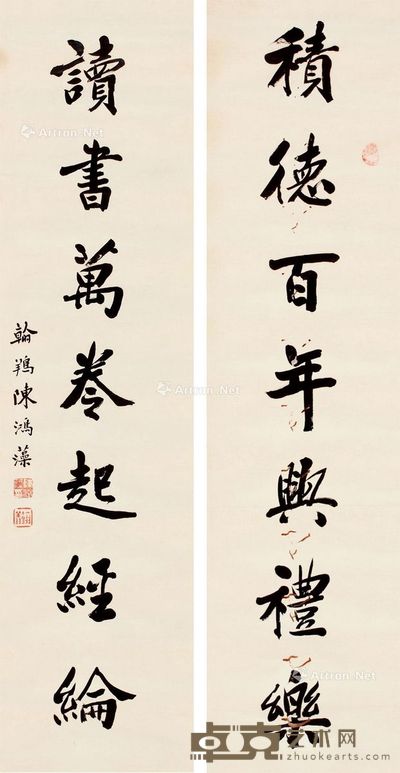 積德百年興禮樂
讀書萬卷起經綸
翰鵷陳鴻藻
Artron.Net
Artron.Net
Artron.Net
Artron.Net
卓克艺术网
zhuokearts.com